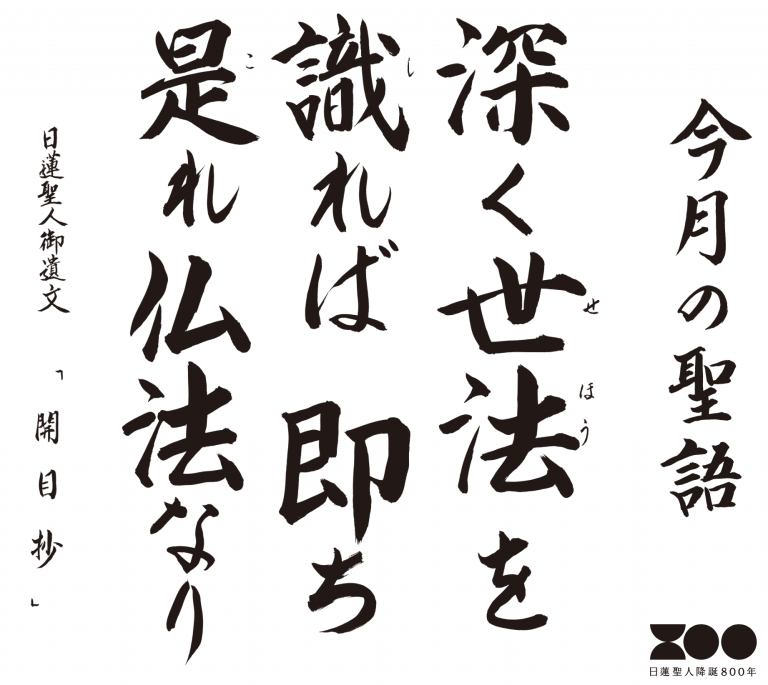 今月の聖語
深く世法を
せほう
識れば 即ち
し
是れ仏法なり
こ
日蓮聖人御遺文
「開目抄」
800
日蓮聖人降誕800年